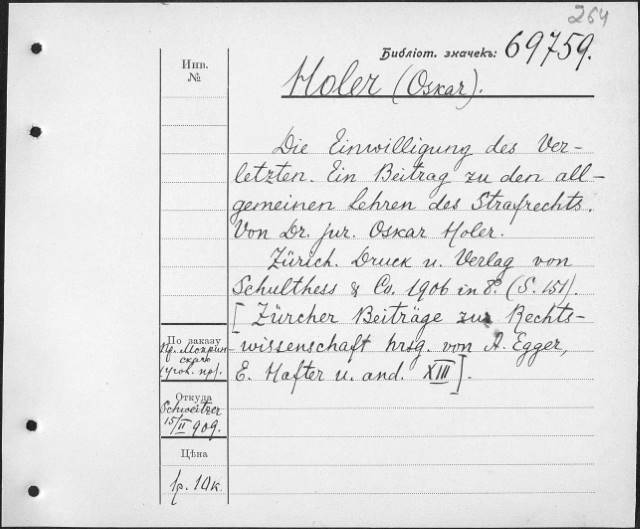 264
Библіот. значекъ: 69759.
Инв.
№
Holer (Oskar).
Die Einwilligung des Ver-
letzten. Ein Beitrag zu den all-
gemeinen Lehren des Strafrechts.
Von Dr. jur. Oskar Holer.
Zürich. Druck u. Verlag von
Schulthess & Co. 1906 in 8°. (S. 151).
[Zürcher Beiträge zur Rechts-
wissenschaft hrsg. von A. Egger,
E. Hafter u. and. XIII].
По заказу
пр. Мокрин-
скаго
(угол. пр).
Откуда
Schweitzer
15/II 909.
Цѣна
1р. 10к.